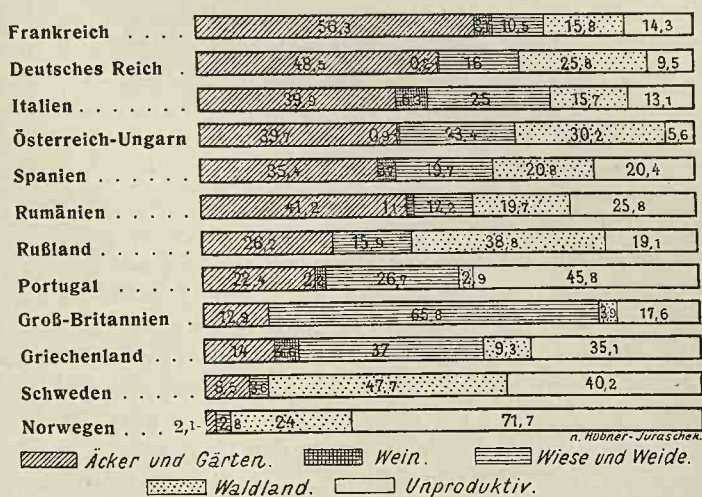 Frankreich . . . . 56,3 3,1 10,5 15,8 14,3
Deutsches Reich . 48,5 0,2 16 25,8 9,5
Italien . . . . . . . 39,9 6,3 25 15,7 13,1
Österreich-Ungarn 39,7 0,9 23,4 30,2 5,6
Spanien . . . . . . 35,4 3,7 19,7 20,8 20,4
Rumänien . . . . . 41,2 1,1 12,2 19,7 25,8
Rußland . . . . . . 26,2 15,9 38,8 19,1
Portugal . . . . . 22,4 2,2 26,7 2,9 45,8
Groß-Britannien . 12,9 65,8 3,9 17,6
Griechenland . . . 14 4,6 37 9,3 35,1
Schweden . . . . . 8,5 3,6 47,7 40,2
Norwegen . . . 2,1- 2,8 24 71,7
n. Hübner-Juraschek.
Äcker und Gärten. Wein. Wiese und Weide.
Waldland. Unproduktiv.